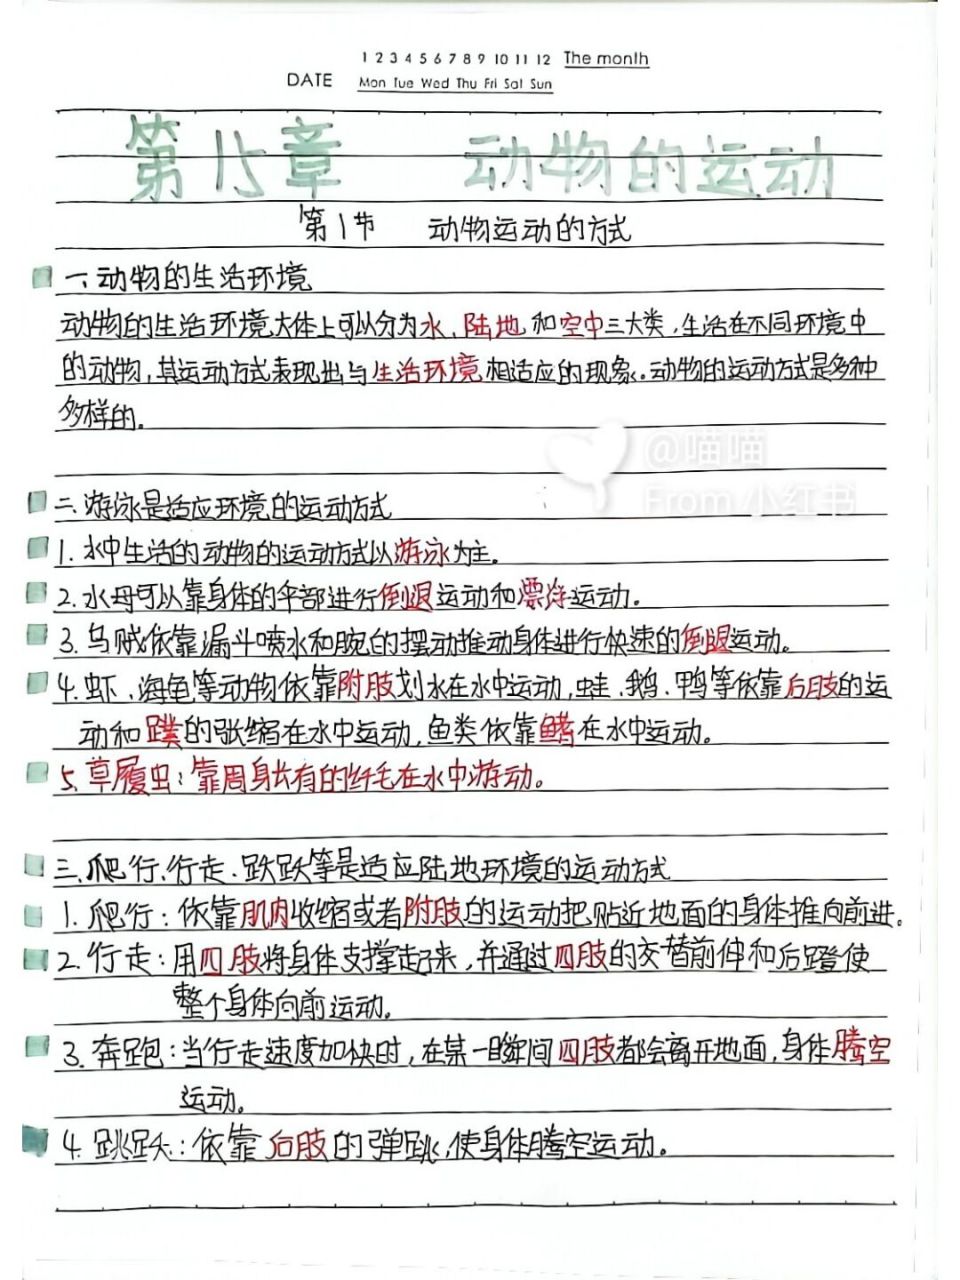 1 2 3 4 5 6 7 8 9 10 11 12 The month
DATE Mon Tue Wed Thu Fri Sat Sun
第15章 动物的运动
第1节 动物运动的方式
一.动物的生活环境
动物的生活环境大体上可以分为水、陆地和空中三大类,生活在不同环境中
的动物,其运动方式表现出与生活环境相适应的现象.动物的运动方式是多种
多样的。
@喵喵
From 小红书
二.游泳是适应环境的运动方式
1.水中生活的动物的运动方式以游泳为主。
2.水母可以靠身体的伞部进行倒退运动和漂浮运动.
3.乌贼依靠漏斗喷水和腕的摆动推动身体进行快速的倒退运动。
4.虾、海龟等动物依靠附肢划水在水中运动,蛙、鹅、鸭等依靠后肢的运
动和蹼的张缩在水中运动,鱼类依靠鳍在水中运动。
5.草履虫:靠周身长有的纤毛在水中游动。
三.爬行、行走、跃跃等是适应陆地环境的运动方式
1.爬行:依靠肌肉收缩或者附肢的运动把贴近地面的身体推向前进。
2.行走:用四肢将身体支撑起来,并通过四肢的交替前伸和后蹬使
整个身体向前运动。
3.奔跑:当行走速度加快时,在某一瞬间四肢都会离开地面,身体腾空
运动。
4.跳跃:依靠后肢的弹跳,使身体腾空运动。